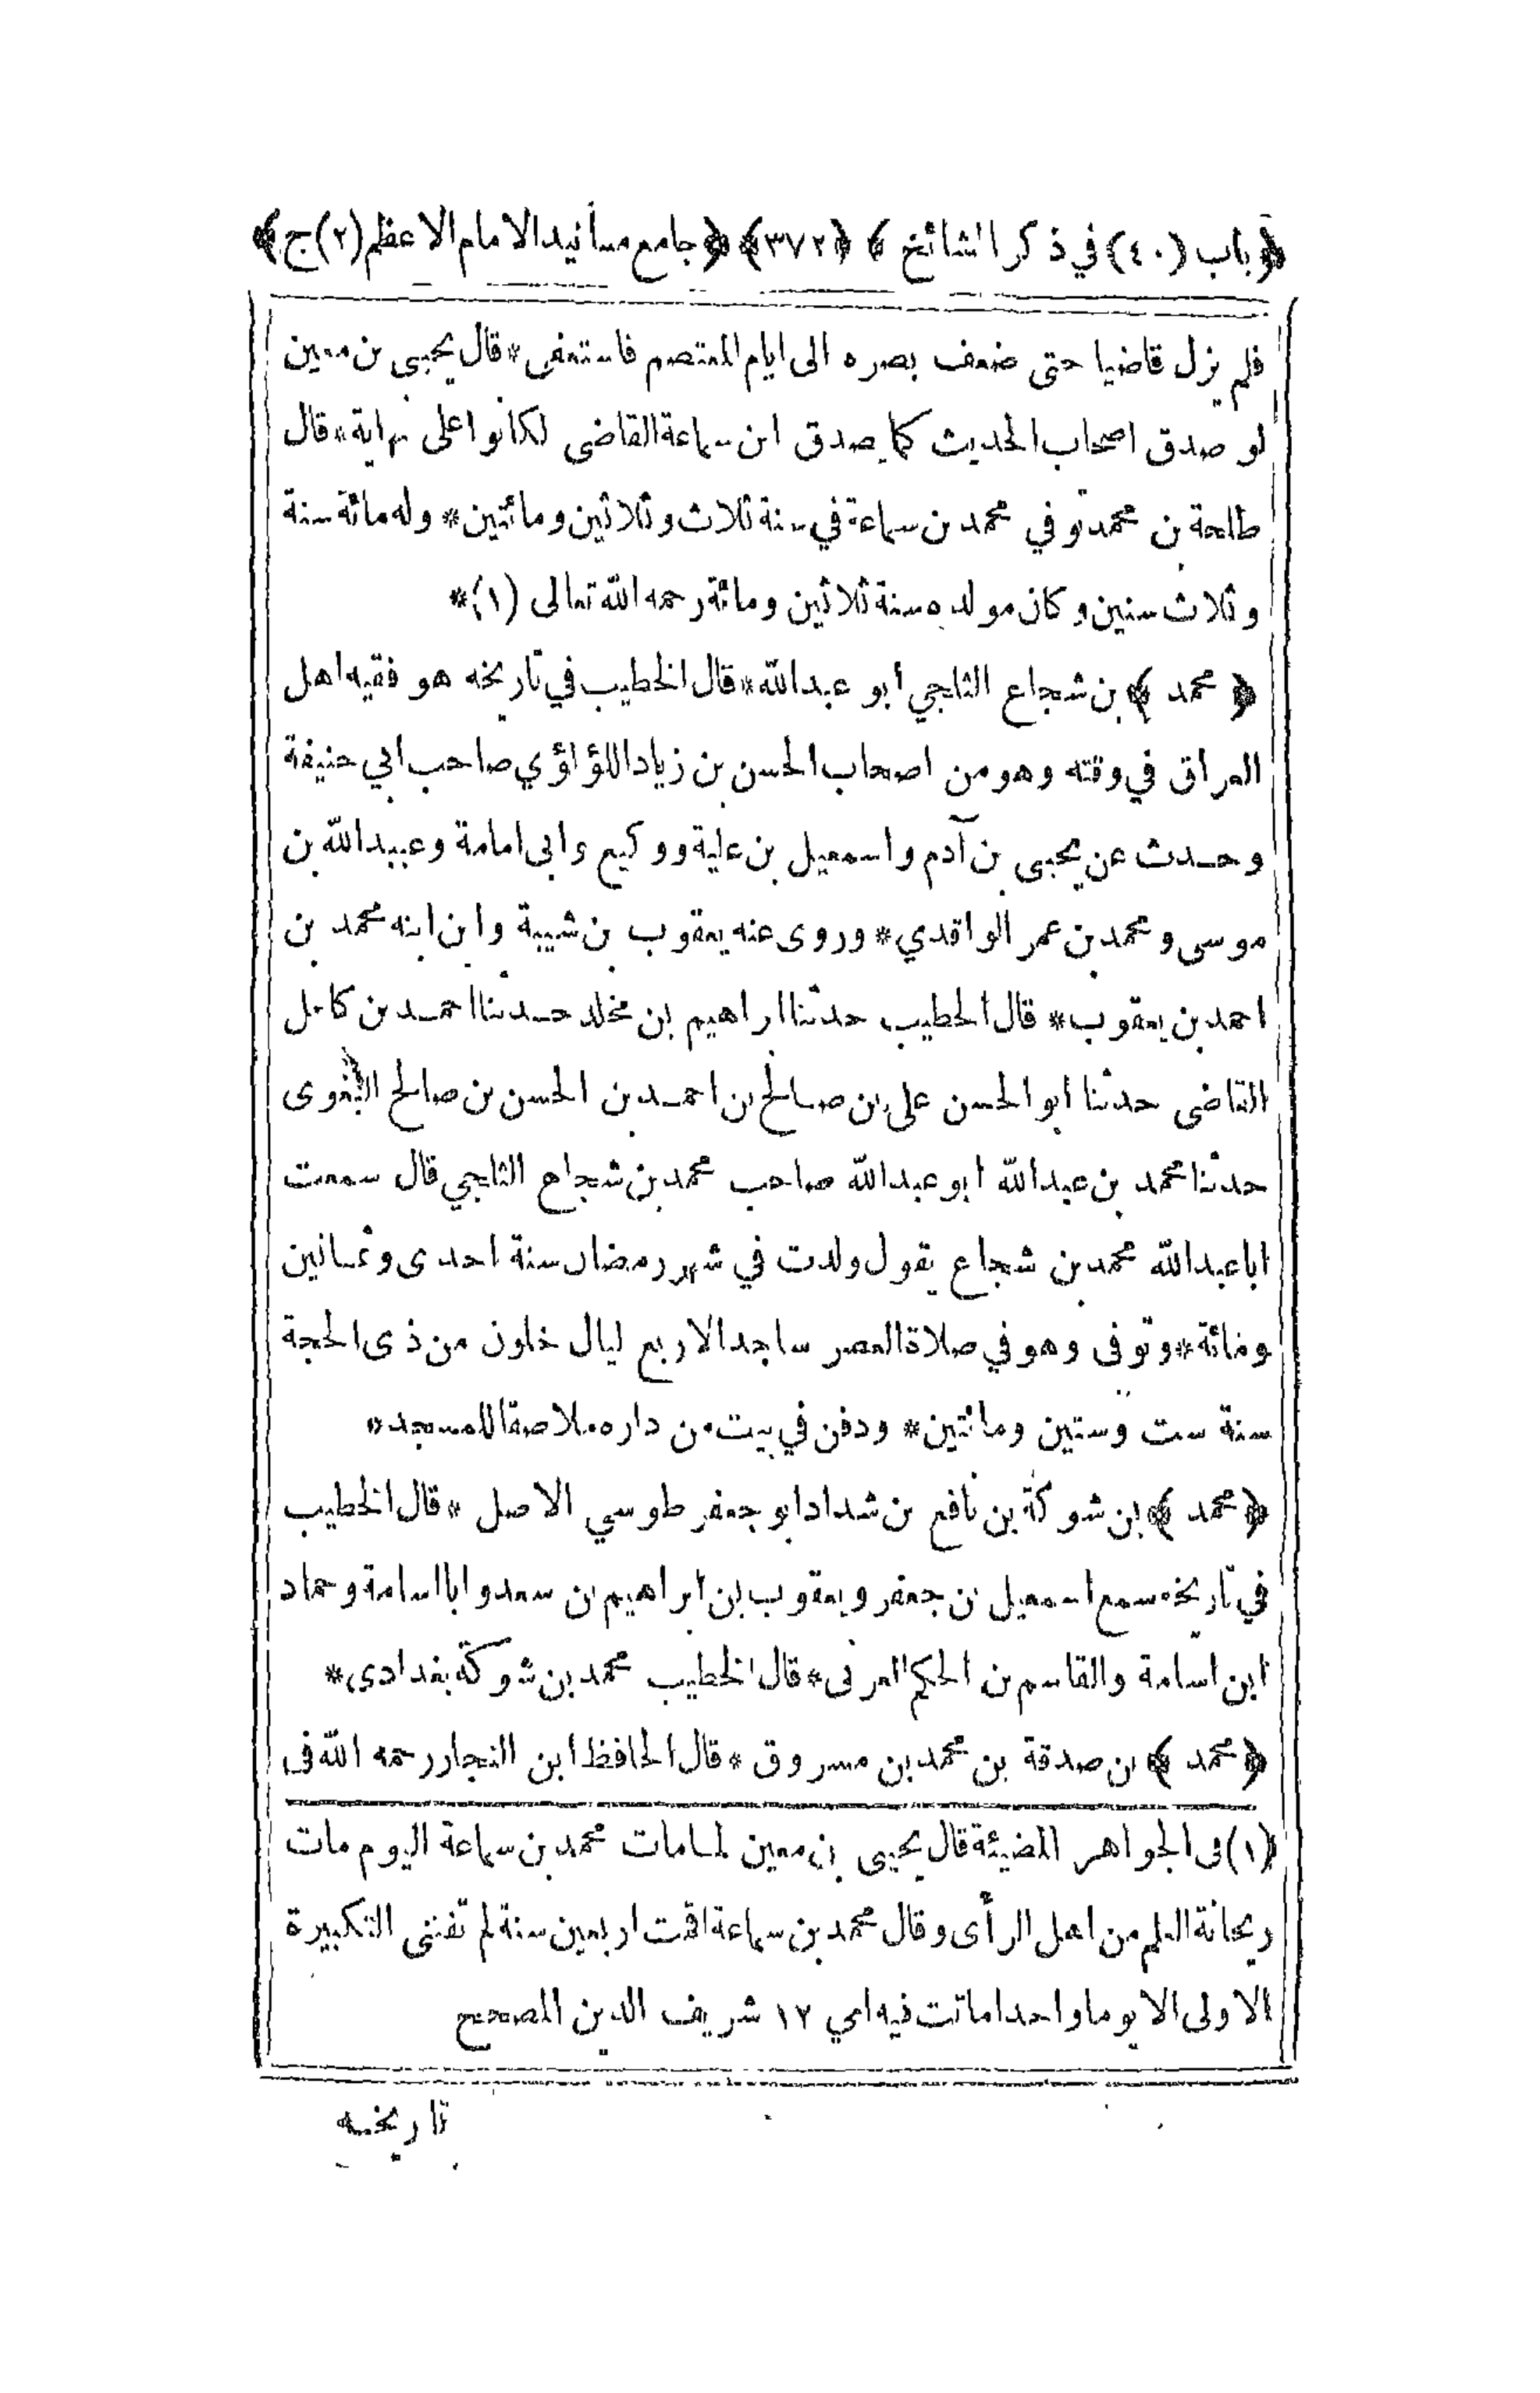 ﴿باب (٤٠) في ذكر المشائخ﴾ ﴿٣٧٢﴾ ﴿جامع مسانيد الامام الاعظم (٢) ج﴾
فلم يزل قاضيا حتى ضعف بصره الى ايام المعتصم فاستعفى * قال يحيى بن معين
لو صدق اصحاب الحديث كما صدق ابن سماعة القاضى لكانوا على نهاية * قال
طلحة بن محمد توفي محمد بن سماعة في سنة ثلاث وثلاثين ومائتين * وله مائة سنة
وثلاث سنين وكان مولده سنة ثلاثين ومائة رحمه الله تعالى (١) *
﴿محمد﴾ بن شجاع الثلجي أبو عبد الله * قال الخطيب في تاريخه هو فقيه اهل
العراق في وقته وهو من اصحاب الحسن بن زياد اللؤلؤي صاحب ابي حنيفة
وحدث عن يحيى بن آدم واسمعيل بن علية ووكيع وابى امامة وعبيد الله بن
موسى ومحمد بن عمر الواقدي * وروى عنه يعقوب بن شيبة وابن ابنه محمد بن
احمد بن يعقوب * قال الخطيب حدثنا ابراهيم بن مخلد حدثنا احمد بن كامل
القاضى حدثنا ابو الحسن على بن صالح بن احمد بن الحسن بن صالح البغوى
حدثنا محمد بن عبد الله ابو عبد الله صاحب محمد بن شجاع الثلجي قال سمعت
ابا عبد الله محمد بن شجاع يقول ولدت في شهر رمضان سنة احدى وثمانين
ومائة * وتوفى وهو في صلاة العصر ساجدا لاربع ليال خلون من ذى الحجة
سنة ست وستين ومائتين * ودفن في بيت من داره ملاصقا للمسجد *
﴿محمد﴾ بن شوكة بن نافع بن شداد ابو جعفر طوسي الاصل * قال الخطيب
في تاريخه سمع اسمعيل بن جعفر ويعقوب بن ابراهيم بن سعد وابا اسامة وحماد
ابن اسامة والقاسم بن الحكم العرنى * قال الخطيب محمد بن شوكة بغدادى *
﴿محمد﴾ بن صدقة بن محمد بن مسروق * قال الحافظ ابن النجار رحمه الله فى
(١) فى الجواهر المضيئة قال يحيى بن معين لما مات محمد بن سماعة اليوم مات
ريحانة العلم من اهل الرأى وقال محمد بن سماعة اقمت اربعين سنة لم تفتنى التكبيرة
الاولى الا يوما واحدا ماتت فيه امي ١٢ شريف الدين المصحح
تاريخه